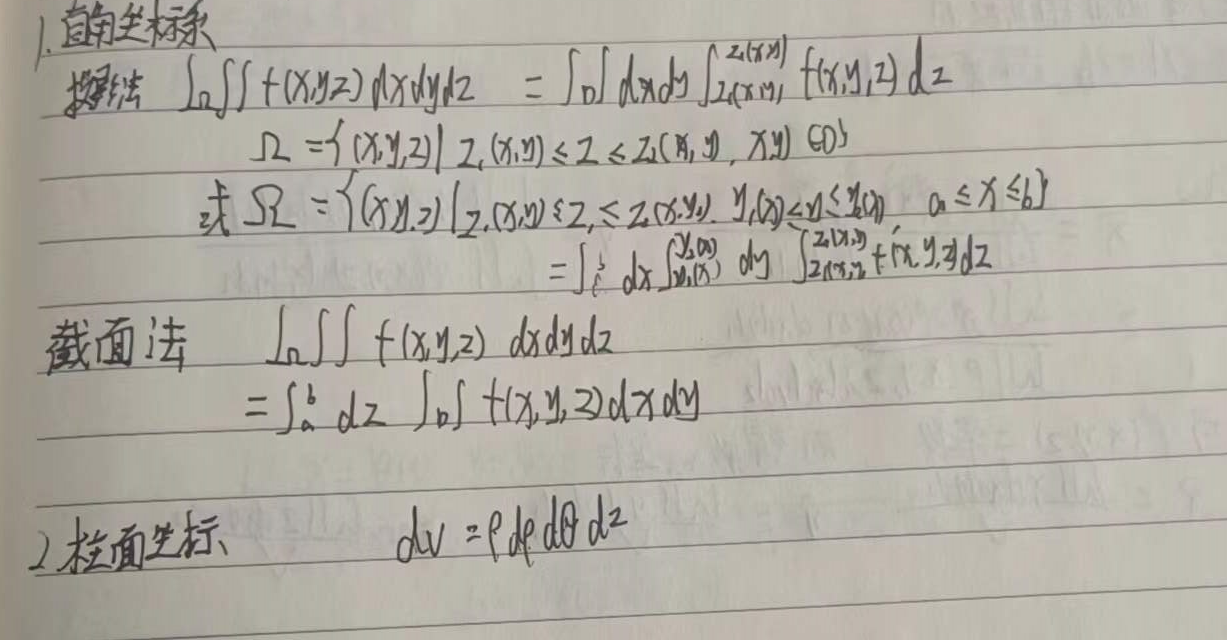 1. 直角坐标系
投影法 ∫Ω∫∫ f(x,y,z) dxdydz = ∫D∫ dxdy ∫_{z₁(x,y)}^{z₂(x,y)} f(x,y,z) dz
Ω = {(x,y,z) | z₁(x,y) ≤ z ≤ z₂(x,y), x,y) ∈D}
或 Ω = {(x,y,z) | z₁(x,y) ≤ z ≤ z₂(x,y), y₁(x) ≤ y ≤ y₂(x), a ≤ x ≤ b}
= ∫ dx ∫_{y₁(x)}^{y₂(x)} dy ∫_{z₁(x,y)}^{z₂(x,y)} f(x,y,z) dz
截面法 ∫Ω∫∫ f(x,y,z) dxdydz
= ∫_a^b dz ∫D∫ f(x,y,z) dxdy
2. 柱面坐标 dv = ρ dρ dθ dz